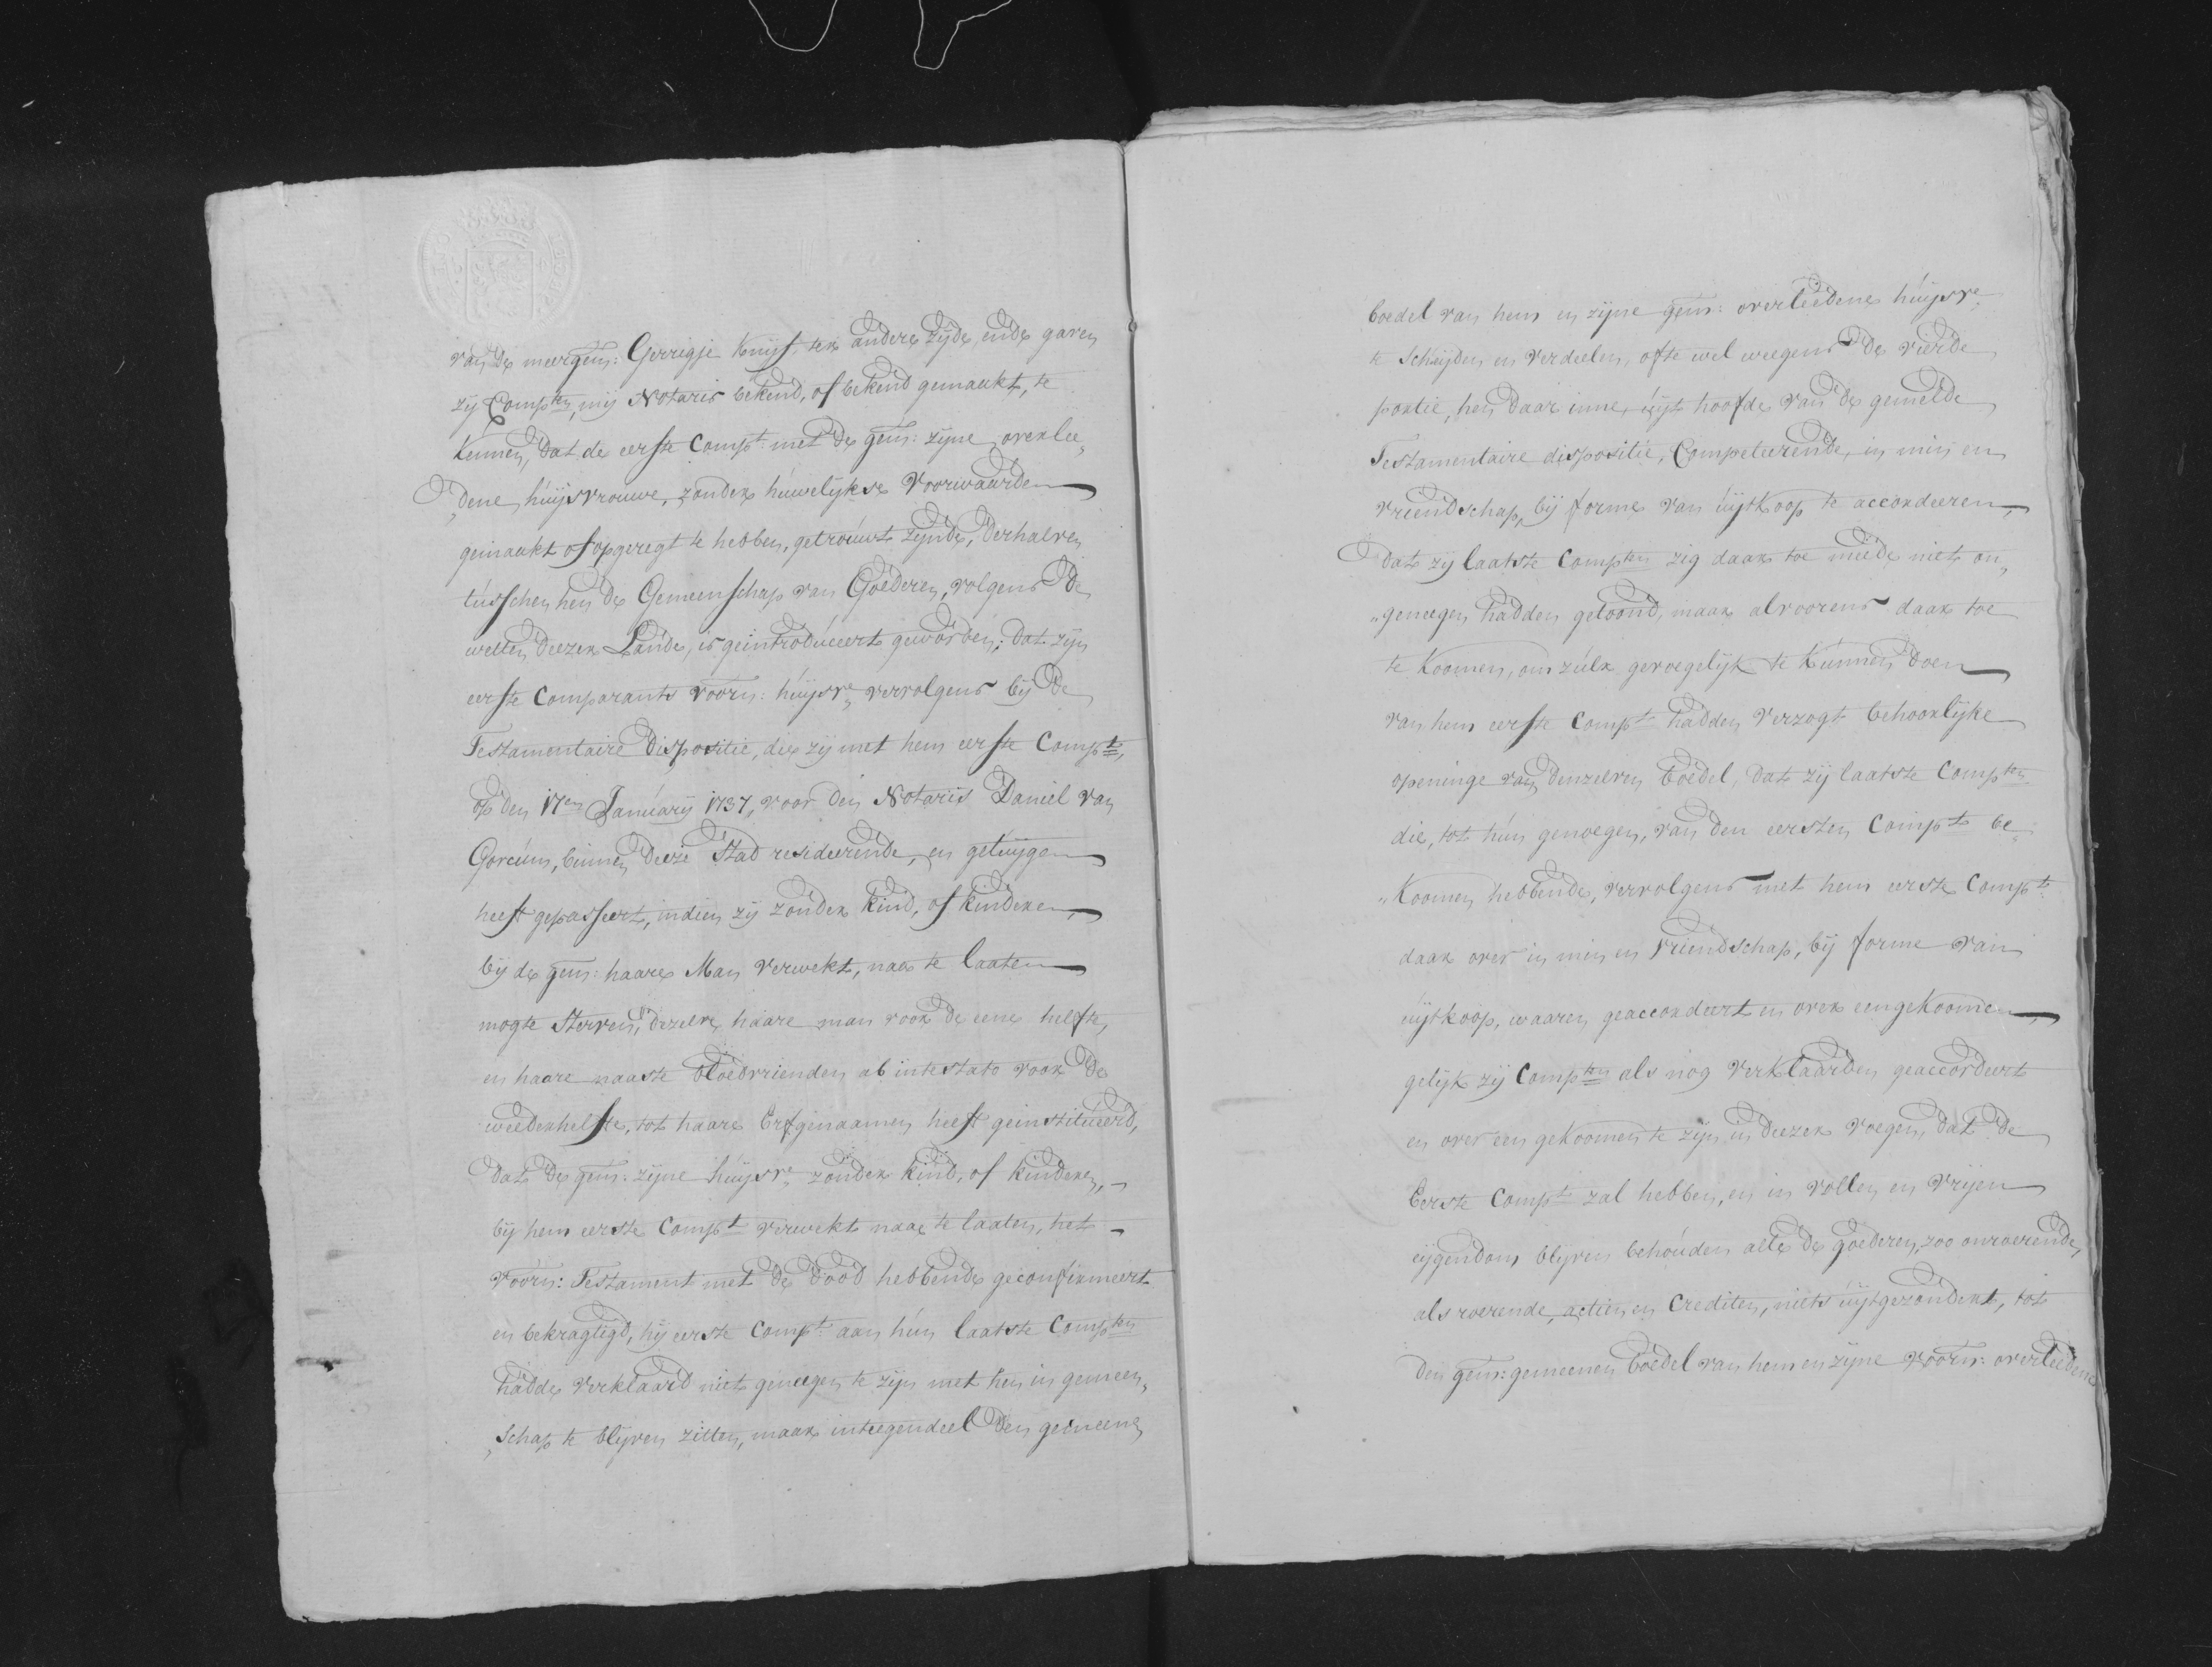 van de meergem: Gerrigje Knijf, ter andere zijde, ende gaven
zij Comp^ten, mij Notaris bekend, of bekend gemaakt, te
kennen, dat de eerste Comp^t: met de gem: zijne overlee„
„dene húijsvrouwe, zonder húwelijkse voorwaarden
gemaakt of opgeregt te hebben, getroúwt zijnde, derhalven
tússchen hen de Gemeenschap van Goederen, volgens de
wetten deezer Lande, is geintrodúceert geworden; dat zijn
eerste Comparants voorn: húijsv^e, vervolgens bij de
Testamentaire dispositie, die zij met hem eerste Comp^t,
op den 17^en Janúarij 1737, voor den Notaris Daniel van
Gorcúm, binnen deeze Stad resideerende, en getúijgen
heeft gepasseert, indien zij zonder kind, of kinderen,
bij de gem: haare Man verwekt, naar te laaten
mogte sterven, dezelve haare man voor de eene helfte,
en haare naaste bloedvrienden ab intestato voor de
weederhelfte, tot haare Erfgenaamen heeft geinstitúeerd,
dat de gem: zijne húijsv^e, zonder kind, of kinderen,
bij hem eerste Comp^t verwekt naar te laaten, het
voorn: Testament met de dood hebbende geconfirmeert
en bekragtigd, hij eerste Comp^t: aan hún laatste Comp^ten
hadde verklaard niet geneegen te zijn met hen in gemeen„
„schap te blijven zitten, maar integendeel den gemeene
boedel van hem en zijne gem: overleedene húijsv^e
te scheijden en verdeelen, ofte wel weegens de vierde
portie, hen daar inne, úijt hoofde van de gemelde
Testamentaire dispositie, Competeerende, in min en
vriendschap, bij forme van úijtkoop te accordeeren,
dat zij laatste Comp^ten zig daar toe meede niet on„
„geneegen hadden getoond, maar alvoorens daar toe
te koomen, om zúlx gevoegelijk te kúnnen doen
van hem eerste Comp^t hadden verzogt behoorlijke
openinge van denzelven boedel, dat zij laatste Comp^ten
die, tot hún genoegen, van den eersten Comp^t be„
„koomen hebbende, vervolgens met hem eerste Comp^t:
daar over in min en vriendschap, bij forme van
úijtkoop, waaren geaccordeert en over eengekoomen,
gelijk zij Comp^ten als nog verklaarden geaccordeert
en over een gekoomen te zijn in deezer voegen, dat de
Eerste Comp^t zal hebben, en in vollen en vrijen
eijgendom blijven behoúden alle de goederen, zoo onroerende,
als roerende, actien en Crediten, niets úijtgezondert, tot
den gem: gemeenen boedel van hem en zijne voorn: overleedene